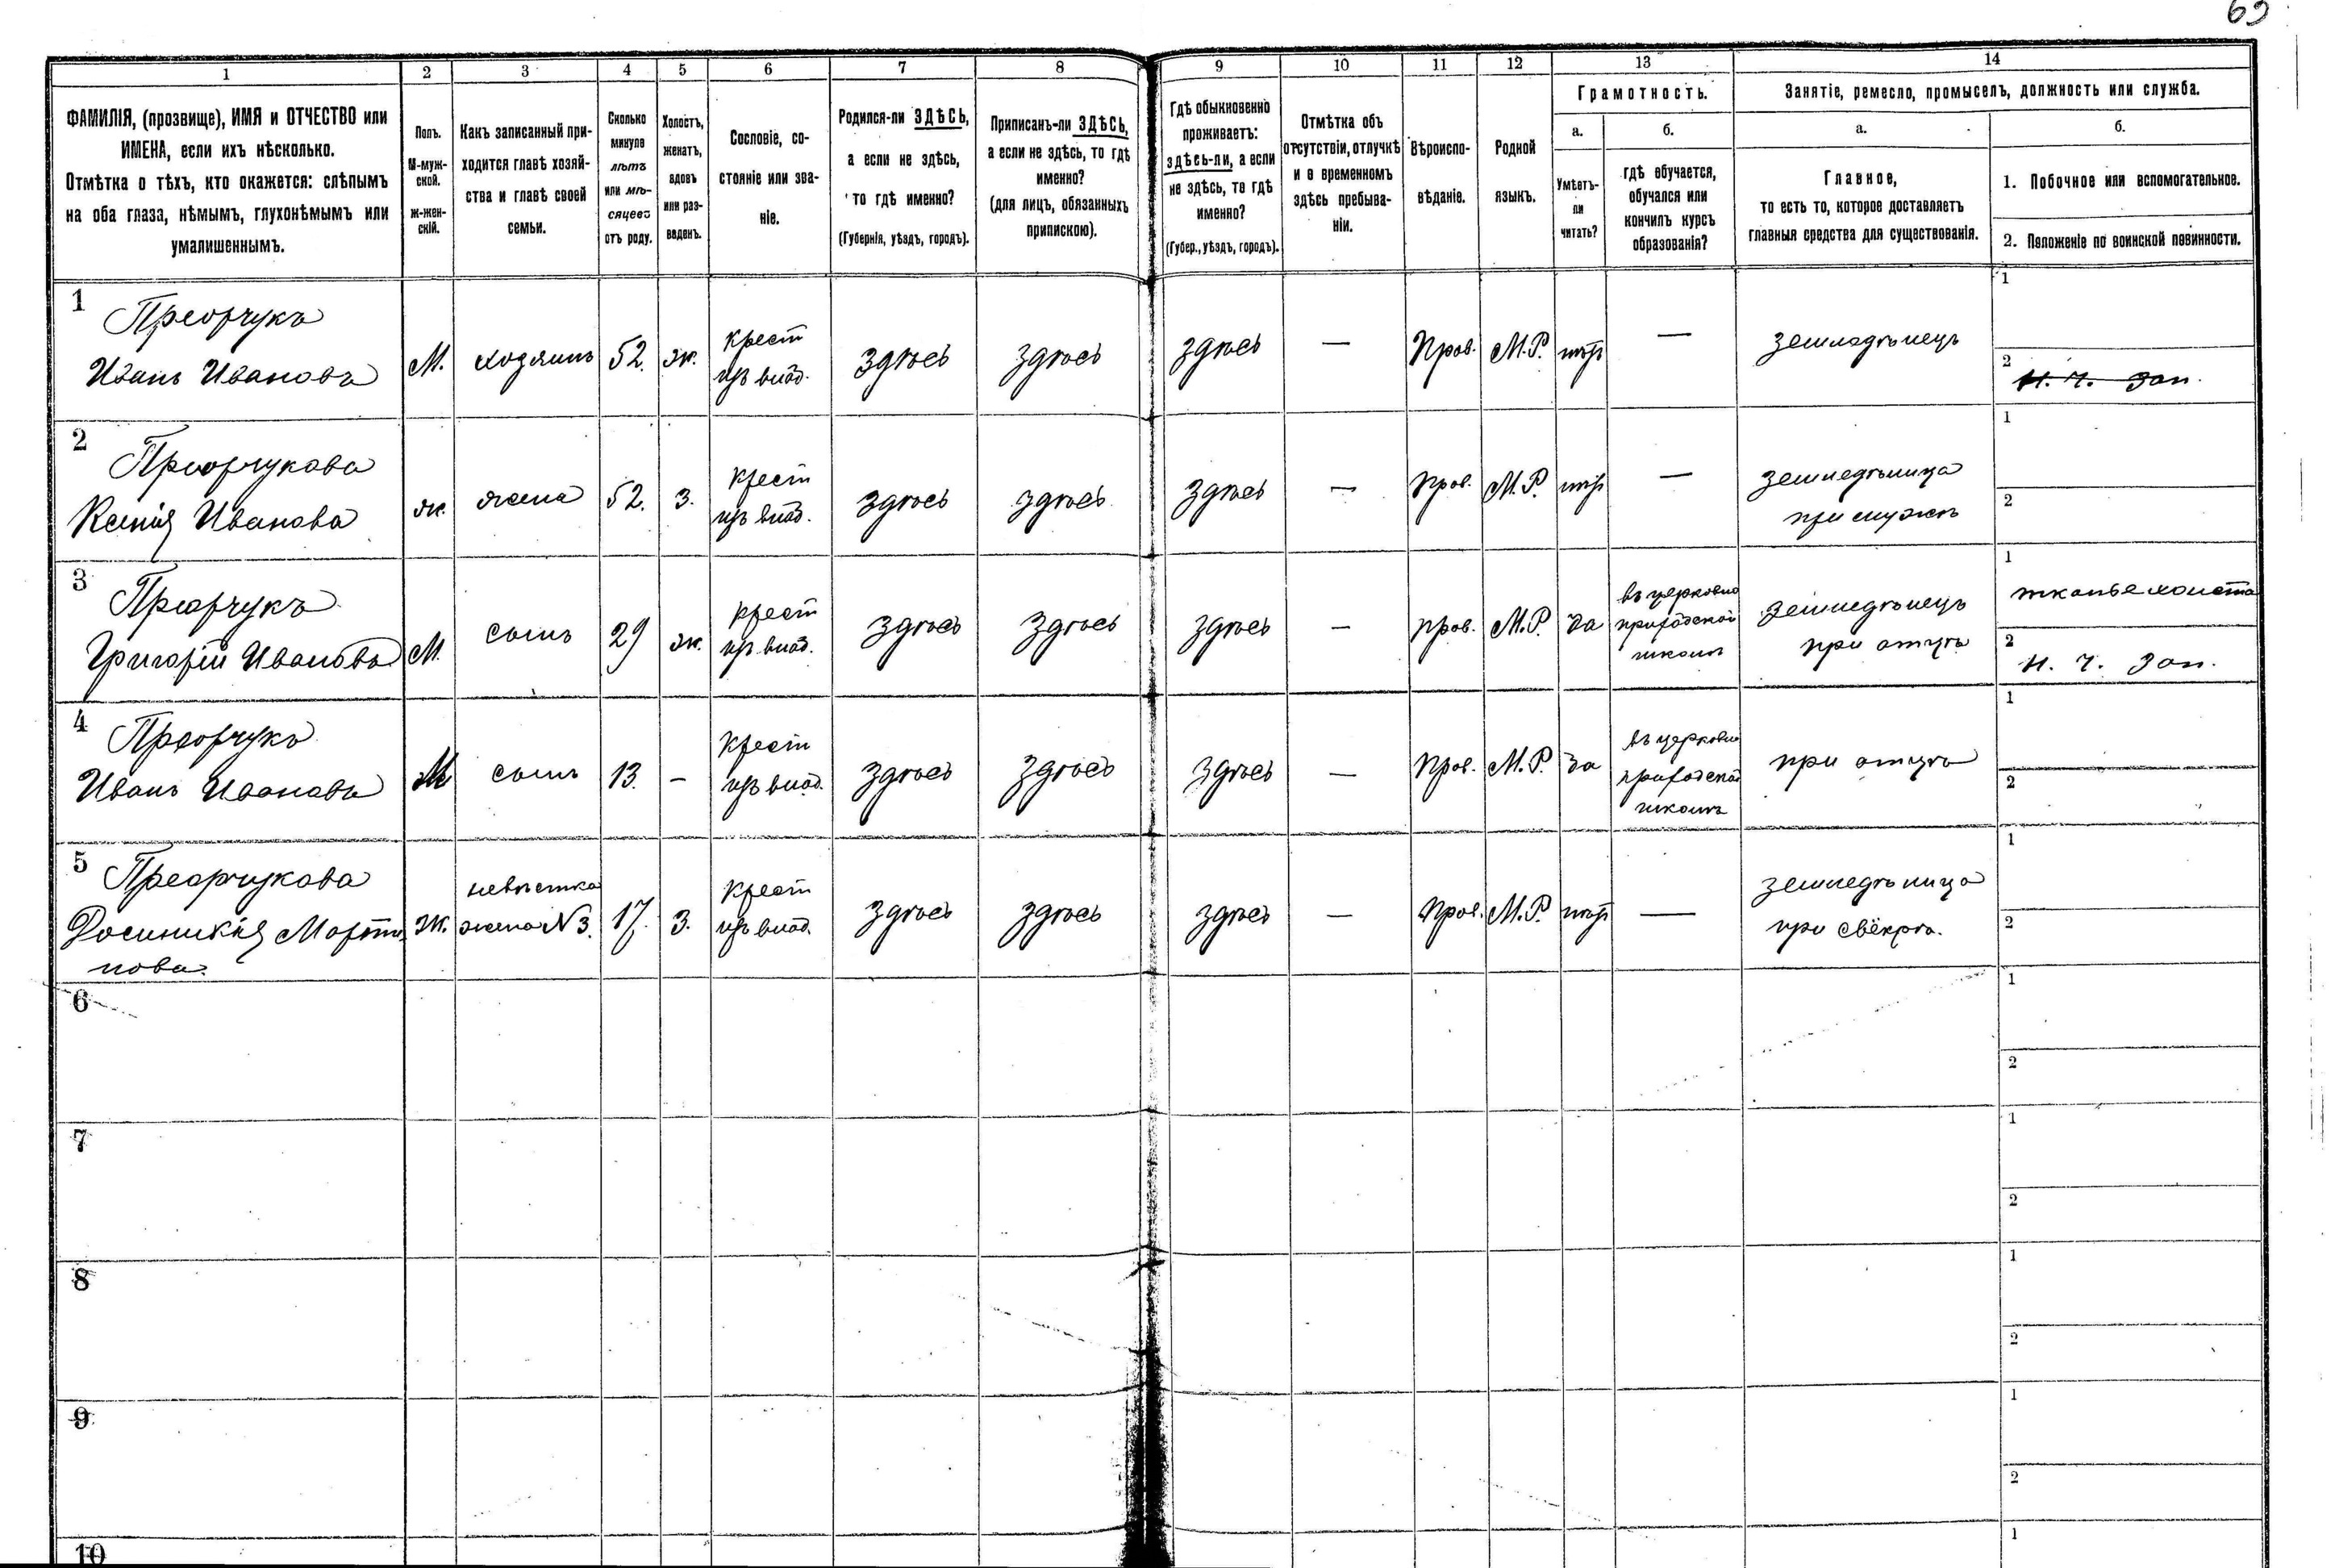 69
1 2 3 4 5 6 7 8 9 10 11 12 13 14
ФАМИЛІЯ, (прозвище), ИМЯ и ОТЧЕСТВО или
ИМЕНА, если ихъ нѣсколько.
Отмѣтка о тѣхъ, кто окажется: слѣпымъ
на оба глаза, нѣмымъ, глухонѣмымъ или
умалишеннымъ.
Полъ.
М-муж-
ской.
ж-жен-
скій.
Какъ записанный при-
ходится главѣ хозяй-
ства и главѣ своей
семьи.
Сколько
минуло
лѣтъ
или мѣ-
сяцевъ
отъ роду.
Холостъ,
женатъ,
вдовъ
или раз-
веденъ.
Сословіе, со-
стояніе или зва-
ніе.
Родился-ли ЗДѢСЬ,
а если не здѣсь,
то гдѣ именно?
(Губернія, уѣздъ, городъ).
Приписанъ-ли ЗДѢСЬ,
а если не здѣсь, то гдѣ
именно?
(для лицъ, обязанныхъ
припискою).
Гдѣ обыкновенно
проживаетъ:
здѣсь-ли, а если
не здѣсь, то гдѣ
именно?
(Губер., уѣздъ, городъ).
Отмѣтка объ
отсутствіи, отлучкѣ
и о временномъ
здѣсь пребыва-
ніи.
Вѣроиспо-
вѣданіе.
Родной
языкъ.
Грамотность.
а.
Умѣетъ-
ли
читать?
б.
гдѣ обучается,
обучался или
кончилъ курсъ
образованія?
Занятіе, ремесло, промыселъ, должность или служба.
а.
Главное,
то есть то, которое доставляетъ
главныя средства для существованія.
б.
1. Побочное или вспомогательное.
2. Положеніе по воинской повинности.
1
Преорчукъ
Иванъ Ивановъ
М.
хозяинъ
52.
ж.
крест
изъ влад.
здѣсь
здѣсь
здѣсь
—
Прав.
М.Р.
нѣтъ
—
земледѣлецъ
1
2
Н. ч. зап.
2
Преорчукова
Ксенія Иванова
ж.
жена
52.
З.
крест
изъ влад.
здѣсь
здѣсь
здѣсь
—
прав.
М.Р.
нѣтъ
—
земледѣлица
при мужѣ
1
2
3
Преорчукъ
Григорій Ивановъ
М.
сынъ
29
ж.
крест
изъ влад.
здѣсь
здѣсь
здѣсь
—
прав.
М.Р.
да
въ церковно
приходской
школѣ
земледѣлецъ
при отцѣ
1
тканье холста
2
Н. ч. зап.
4
Преорчукъ
Иванъ Ивановъ
М
сынъ
13.
-
крест
изъ влад.
здѣсь
здѣсь
здѣсь
—
прав.
М.Р.
да
въ церковно
приходской
школѣ
при отцѣ
1
2
5
Преорчукова
Марти
нова.
ж.
невѣстка
жена N 3.
17.
З.
крест
изъ влад.
здѣсь
здѣсь
здѣсь
—
прав.
М.Р.
нѣтъ
—
земледѣлица
при свёкрѣ.
1
2
6
1
2
7
1
2
8
1
2
9
1
2
10
1